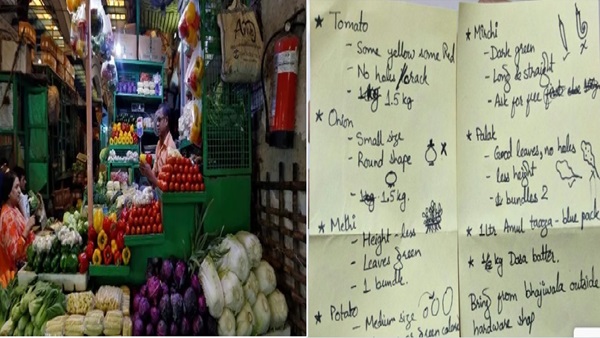 ★ Tomato
- Some yellow some Red
- No holes/crack
- 1.5 kg
★ Onion
- Small size
- Round shape
- 1.5 kg.
★ Methi
- Height - less
- Leaves green
- 1 bundle.
★ Potato
- Medium size
green
★ Mirchi
- Dark green
- Long & straight
- Ask for free
★ Palak
- Good leaves, no holes
- less height
- bundles 2
★ 1 ltr Amul taaza - blue pack
★ kg Dosa batter.
Bring from bhajiwala outside
hardware shop